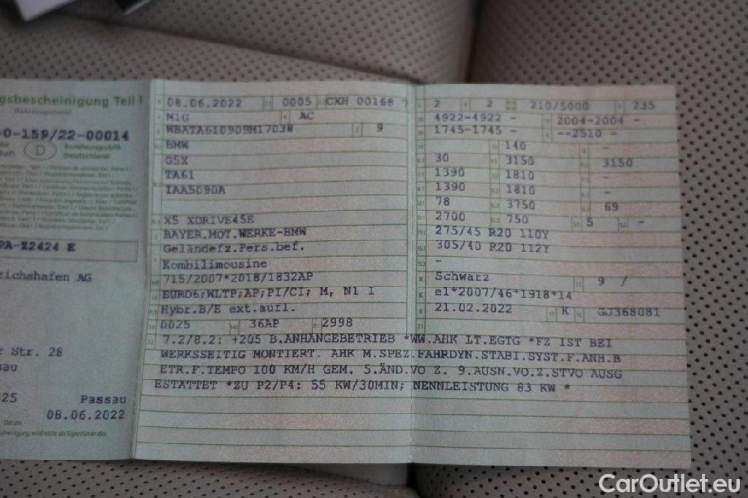 gsbescheinigung Teil I
-0-159/22-00014
D Bundesrepublik
Deutschland
PA-Z2424 E
richshafen AG
er Str. 28
ssau
25 Passau
08.06.2022
08.06.2022 0005 CXH 00168 7
N1G AC
9
BMW
G5X
TA61
IAA5090A
X5 XDRIVE45E
BAYER.MOT.WERKE-BMW
Geländefz.Pers.bef.
Kombilimousine
715/2007*2018/1832AP
EURO6;WLTP;AP;PI/CI; M, N1 I
Hybr.B/E ext.aufl.
0025 36AP 2998
2 2 210/5000 235
4922-4922 - 2004-2004
1745-1745 - --2510 -
140
30 3150 3150
1390 1810 -
1390 1810 -
78 3750 69
2700 750 5 -
275/45 R20 110Y
305/40 R20 112Y
-
Schwarz 9 /
e1*2007/46*1918*14
21.02.2022 K GJ368081
7.2/8.2: +205 B.ANHÄNGEBETRIEB *WW.AHK LT.EGTG *FZ IST BEI
WERKSSEITIG MONTIERT. AHK M.SPEZ.FAHRDYN.STABI.SYST.F.ANH.B
ETR.F.TEMPO 100 KM/H GEM. 5.ÄND.VO Z. 9.AUSN.VO.Z.STVO AUSG
ESTATTET *ZU P2/P4: 55 KW/30MIN; NENNLEISTUNG 83 KW *
CarOutlet.eu